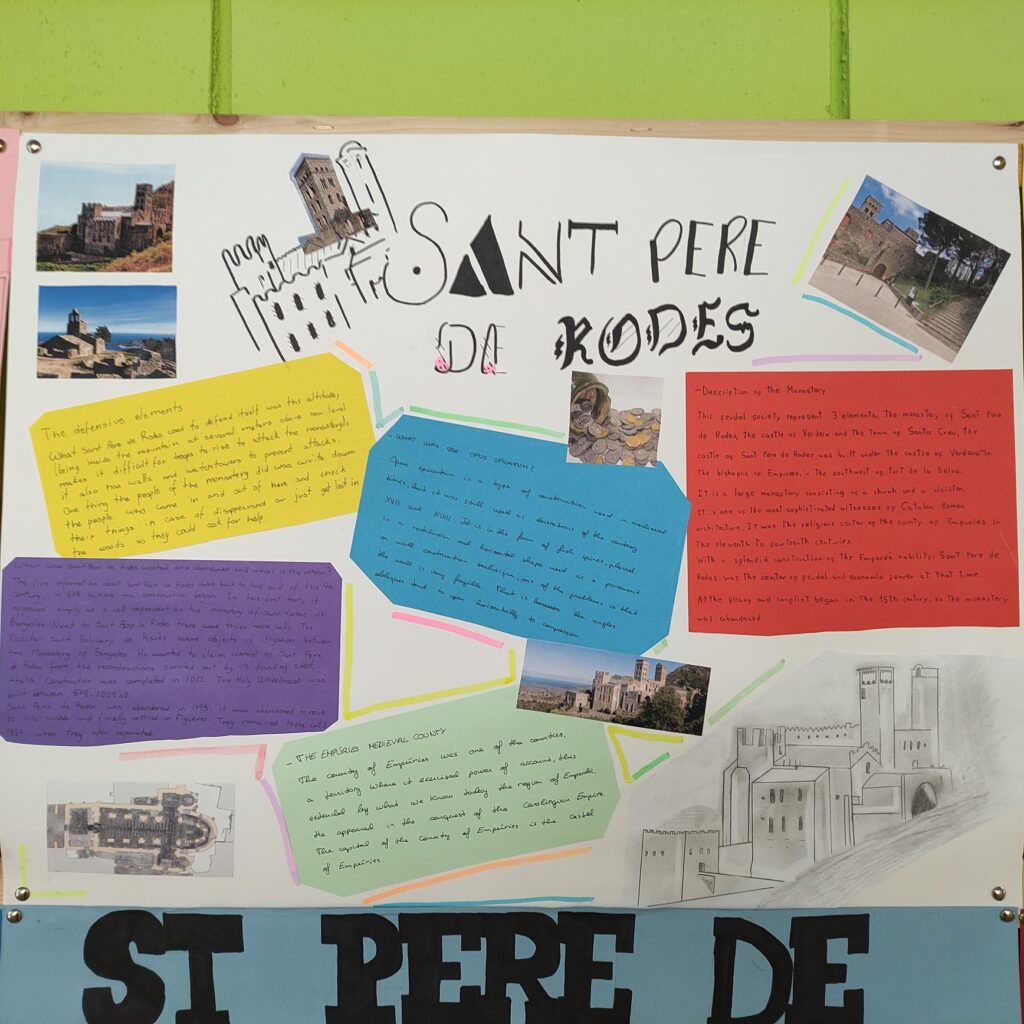 SANT PERE
DE RODES
The defensive elements
What Sant Pere de Rodes used to defend itself was the altitude,
(being inside the mountain at several meters above sea level
makes it difficult for troops to rise to attack the monastery),
it also has walls and watchtowers to prevent attacks.
One thing the people of the monastery did was write down
the people who came in and out of here and check
their things in case of disappeared or just get lost in
the woods so they could ask for help.
- WHAT WAS THE OPUS SPICATUM?
Opus spicatum is a type of construction used in medieval
times, but it was still used as decoration of the country
XVII and XVIII. It is in the form of fish spines, placed
in a and horizontal shape used as a pavement
or wall construction technique, one of the problems is that
the wall is very fragile. That is because the angles
obliques tend to open horizontally to compression
- Description of the Monastery
This feudal society represent 3 elements, the monastery of Sant Pere
de Rodes, the castle of Verdera and the town of Santa Creu, the
castle of Sant Pere de Rodes was built under the castle of Verdera in
the bishopric of Empuries, in the southwest of Port de la Selva.
It is a large monastery consisting of a church and a cloister.
It is one of the most sophisticated witnesses of Catalan Roman
architecture. It was the religious center of the county of Empuries in
the eleventh to fourteenth centuries.
With a splendid construction of the Empordà nobility, Sant Pere de
Rodes was the center of feudal and economic power at that time.
At the piracy and conflict began in the 15th century, so the monastery
was abandoned.
When was Sant Pere de Rodes created and abandoned and what is the reason?
The first information about Sant Pere de Rodes dates back to the end of the
century, in 878. Where the construction began. In the first texts it
appeared simply as a cell dependent on the monastery of Sant Esteve de
Banyoles. Next to Sant Pere de Rodes there were three more cells. The
Occitan Sant Policarp de Rasès were objects of litigation between
the Monastery of Banyoles. He wanted to claim control of Sant Pere
de Rodes from the reconstructions carried out by its founding abbot,
Attala. Construction was completed in 1022. The Holy was
built between 878-1022 ad.
Sant Pere de Rodes was abandoned in 1793, it was abandoned to move
to Vila-sacra and finally settled in Figueres. They remained there until
1809, when they later separated.
- THE EMPÚRIES MEDIEVAL COUNTY
The county of Empúries was one of the counties,
a territory where it exercised power of account, this
extended by what we know today the region of Empordà.
He appeared in the conquest of the Carolingian Empire
The capital of the county of Empúries is the Castell
of Empúries.
ST PERE DE